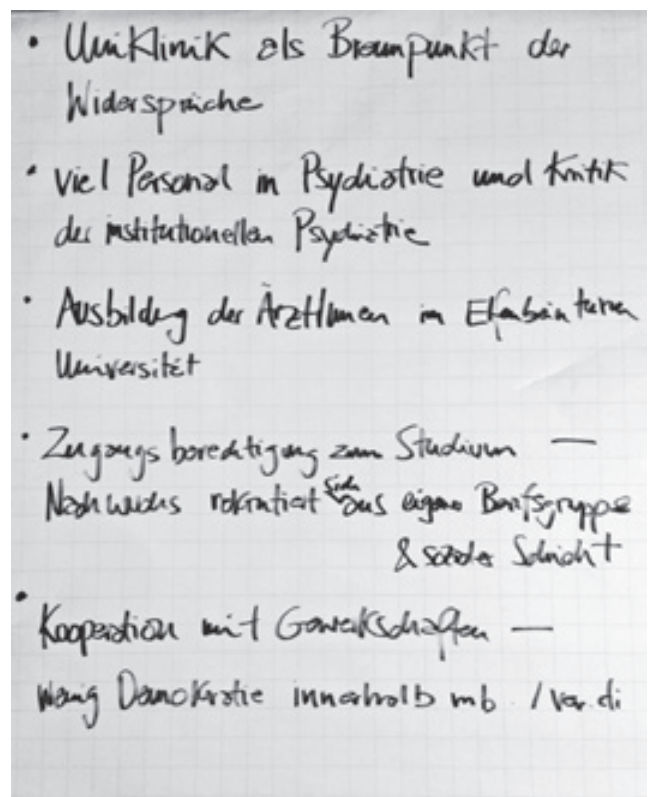 • Uniklinik als Brennpunkt der
Widersprüche
• viel Personal in Psychiatrie und Kritik
der institutionellen Psychiatrie
• Ausbildung der ÄrztInnen im Elfenbeinturm
Universität
• Zugangsberechtigung zum Studium —
Nachwuchs rekrutiert sich aus eigener Berufsgruppe
& sozialer Schicht
• Kooperation mit Gewerkschaften —
wenig Demokratie innerhalb mb / ver.di